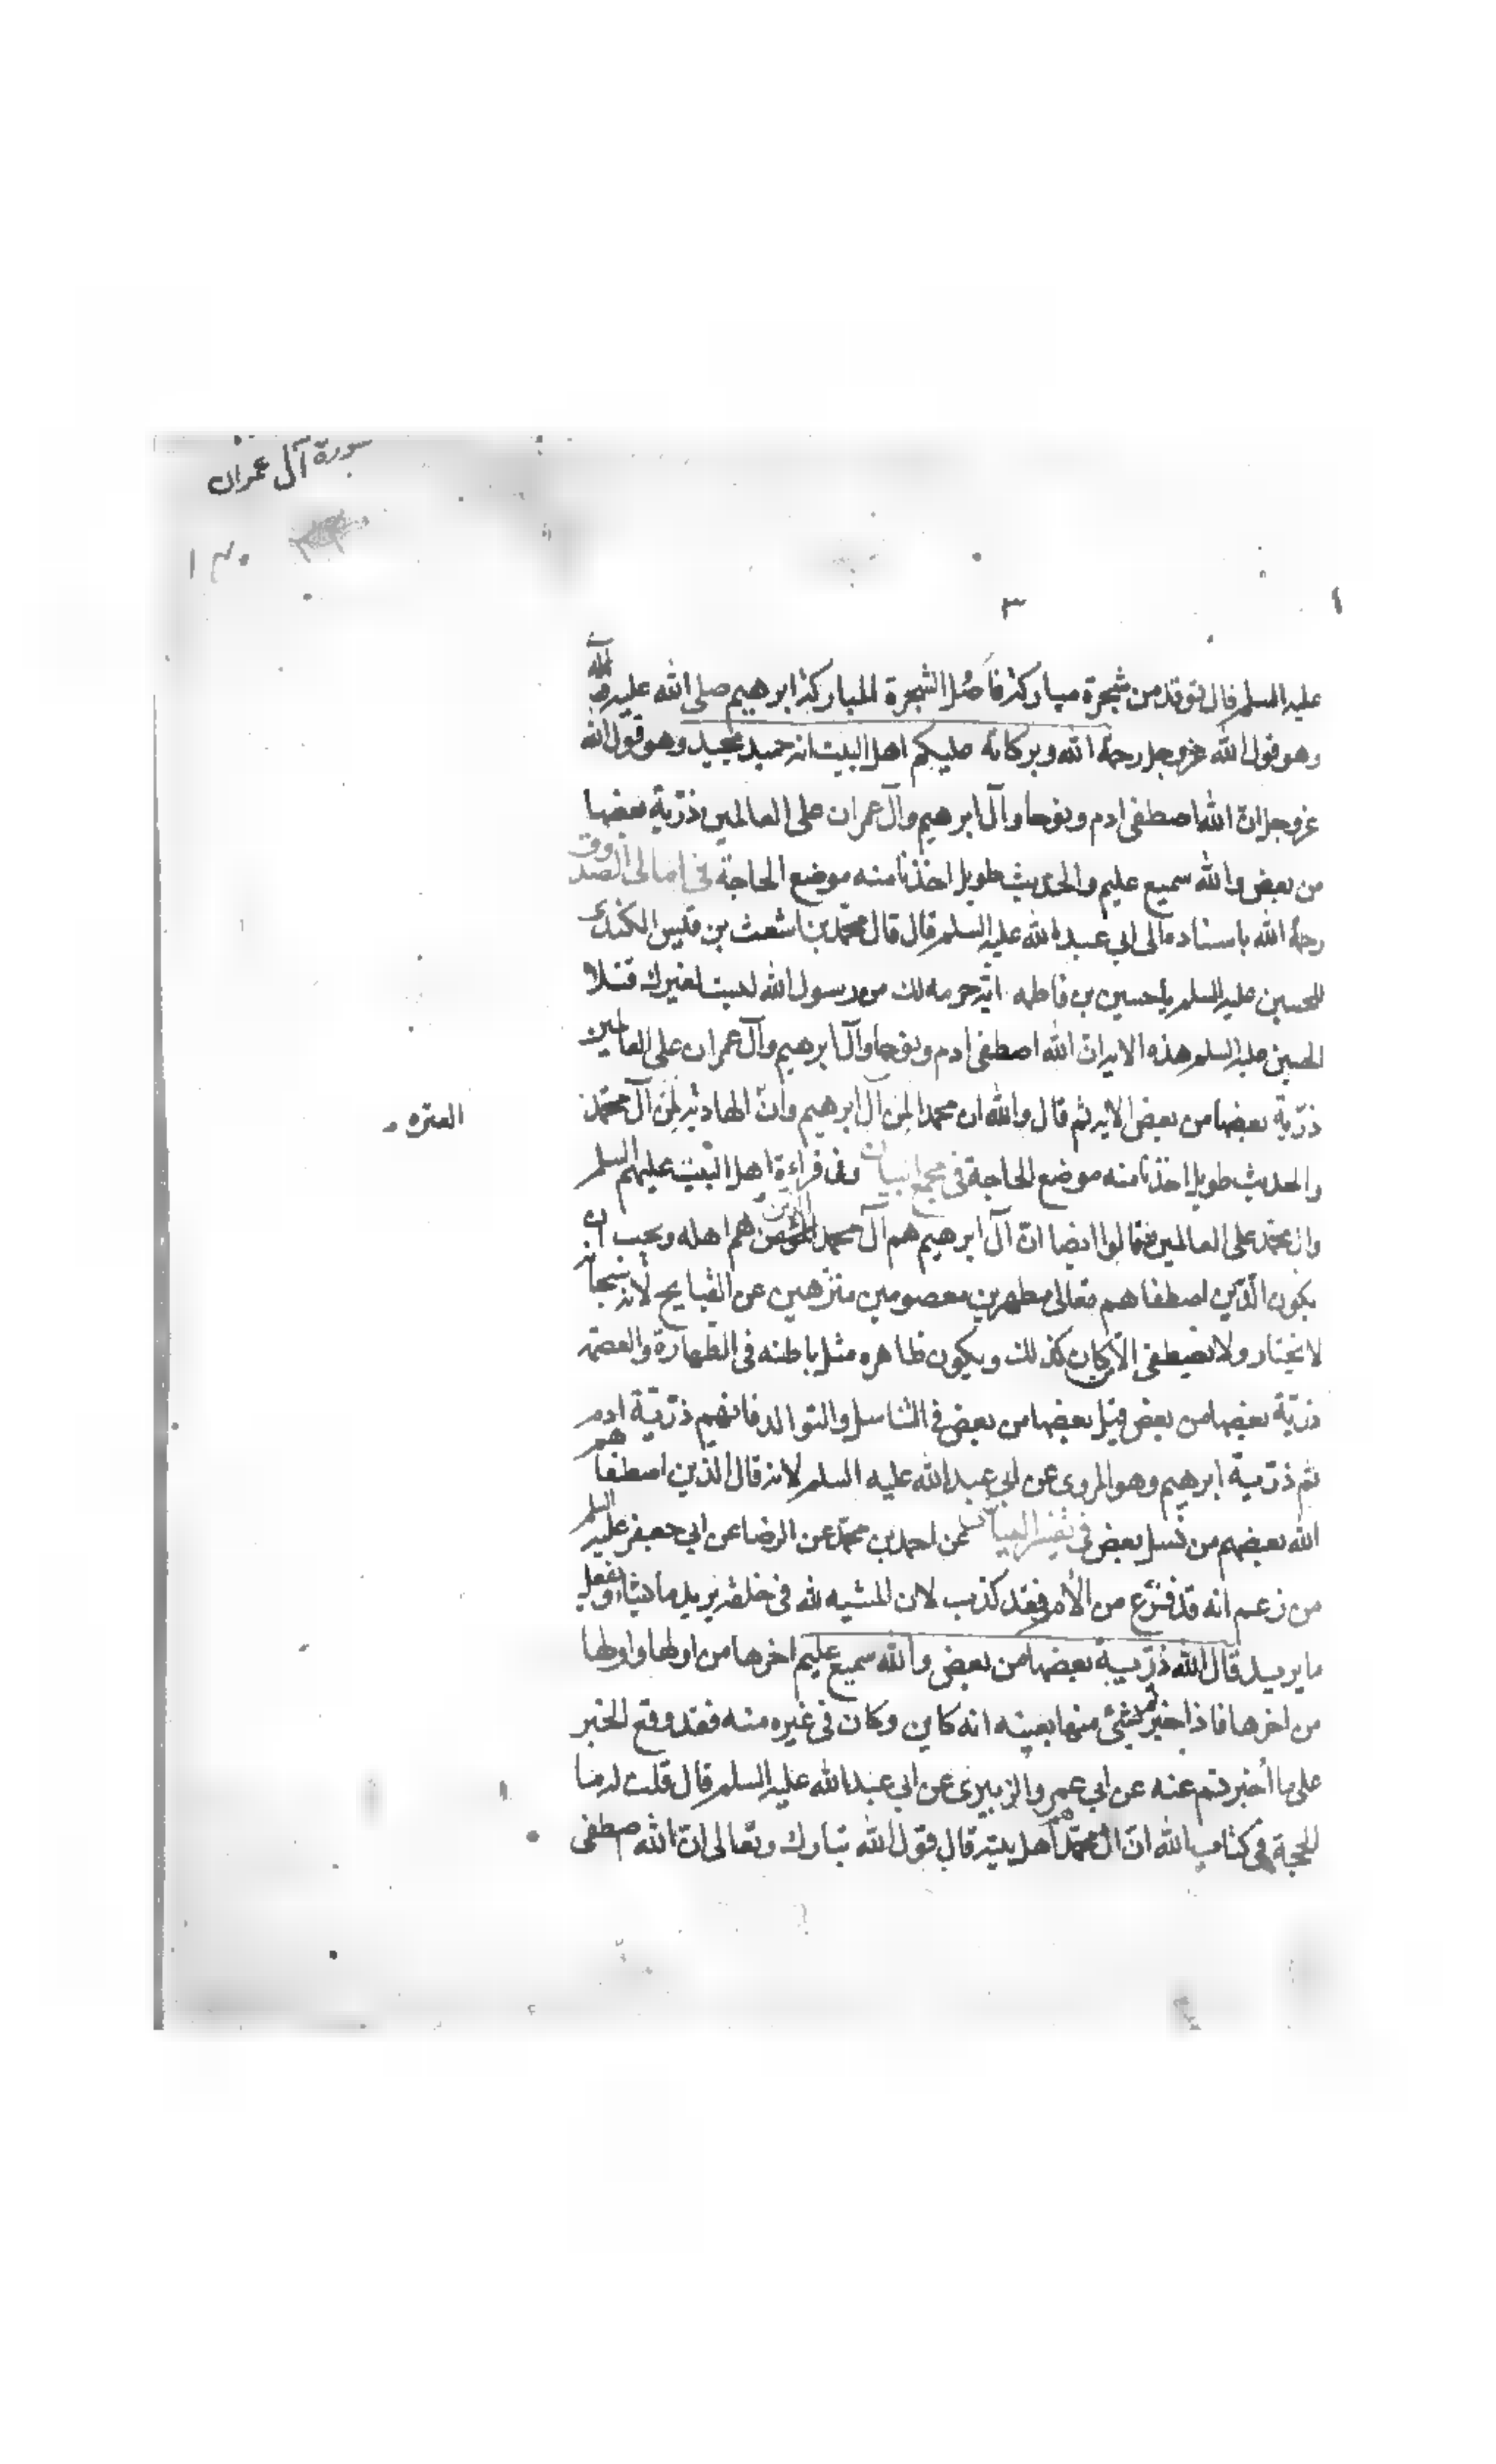 سورة آل عمران
٣
عليه السلم قال توقد من شجرة مباركة فاصل الشجرة المباركة ابرهيم صلى الله عليه وآله
وهو قول الله عز وجل رحمة الله وبركاته عليكم اهل البيت انه حميد مجيد وهو قول الله
عز وجل ان الله اصطفى ادم ونوحا وآل ابرهيم وآل عمران على العالمين ذرّية بعضها
من بعض والله سميع عليم والحديث طويل اخذنا منه موضع الحاجة في امالى الصدوق
رحمه الله باسناده الى ابي عبد الله عليه السلم قال قال محمد بن اشعث بن قيس الكندى
للحسين عليه السلم يا حسين بن فاطمه اية حرمه لك من رسول الله ليست لغيرك فتلا
الحسين عليه السلم هذه الايه ان الله اصطفى ادم ونوحا وآل ابرهيم وآل عمران على العالمين
ذرّية بعضها من بعض الايه ثم قال والله ان محمدا لمن آل ابرهيم وانّ الهادية لمن آل محمد
العتره
والحديث طويل اخذنا منه موضع الحاجة في مجمع البيان وفى قراءة اهل البيت عليهم السلم
وال محمد على العالمين فقالوا ايضا ان آل ابرهيم هم آل محمد الذين هم اهله ويجب ان
يكون الذين اصطفاهم تعالى مطهرين معصومين منزّهين عن القبايح لأنه سبحانه
لا يختار ولا يصطفى الا من كان كذلك ويكون ظاهره مثل باطنه فى الطهارة والعصمة
ذرّية بعضها من بعض قيل بعضها من بعض فى التناسل والتوالد فانهم ذرّية ادم
ثم ذرّية ابرهيم وهو المروى عن ابي عبد الله عليه السلم لانه قال الذين اصطفاهم
الله بعضهم من نسل بعض فى تفسير العياشى عن احمد بن محمد عن الرضا عن ابي جعفر عليه السلم
من زعم انه قد فزع من الأمر فقد كذب لان المشيه لله فى خلقه يريد ما يشاء ويفعل
ما يريد قال الله ذرّية بعضها من بعض والله سميع عليم اخرها من اولها واولها
من اخرها فاذا اخبرتم بشئ منها بعينه انه كاين وكان فى غيره منه فقد وقع الخبر
على ما اخبرتم عنه عن ابي عمرو الزبيرى عن ابي عبد الله عليه السلم قال قلت له ما
الحجة فى كتاب الله ان ال محمد هم اهل بيته قال قول الله تبارك وتعالى ان الله اصطفى